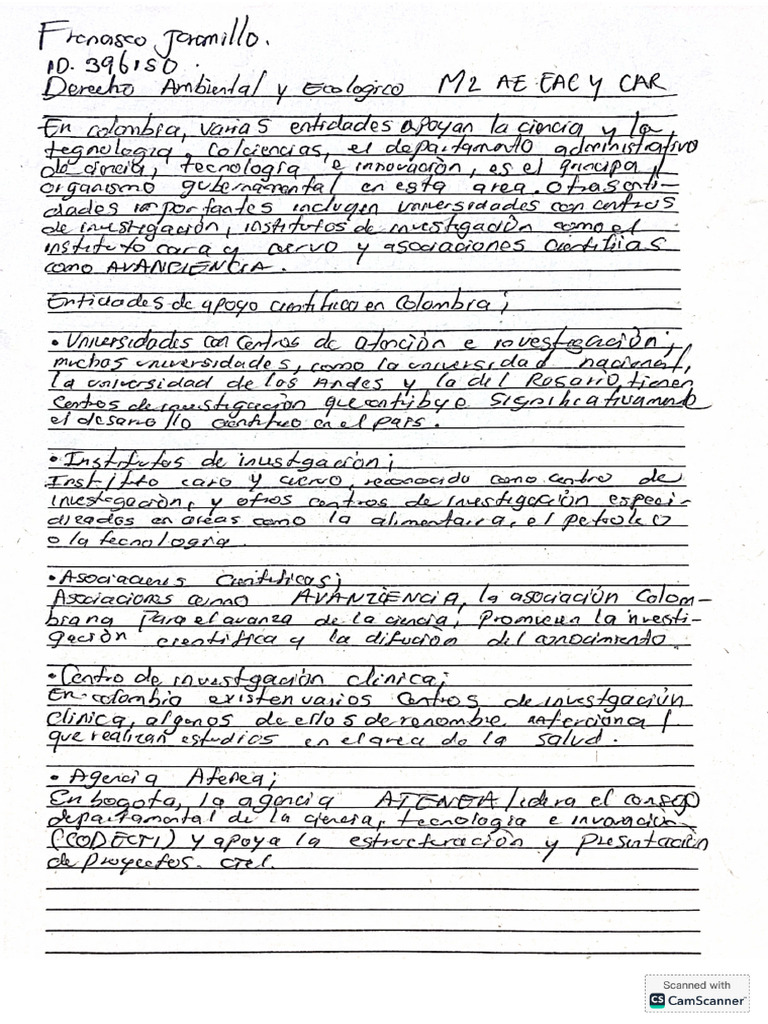 Francisco Jaramillo.
ID. 396150.
Derecho Ambiental y Ecologico M2 AE EAC Y CAR
En colombia, varias entidades apoyan la ciencia y la
tegnologia, Colciencias, el departamento administrativo
de ciencia, tecnologia e innovación, es el principal
organismo gubernamental en esta area. Otras enti-
dades importantes incluyen universidades con centros
de investigación, institutos de investigación como el
instituto caro y cuervo y asociaciones cientificas
como AVANCIENCIA.
Entidades de apoyo cientifico en Colombia;
• Universidades con centros de atención e investigación;
muchas universidades, como la universidad nacional,
la universidad de los Andes y la del Rosario, tienen
centros de investigación que contribuye significativamente
el desarrollo cientifico en el pais.
• Institutos de investigación;
Instituto caro y cuervo, reconocido como centro de
investegación, y otros centros de investigación especi-
alizados en areas como la alimentaria, el petroleo
o la tecnologia.
• Asociaciones Cientificas;
Asociaciones como AVANZIENCIA, la asociación Colom-
biana para el avanza de la ciencia, promueven la investi-
gación cientifica y la difución del conocimiento.
• Centro de investigación clinica;
En colombia existen varios centros de investgación
clinica, algunos de ellos de renombre
que realizan estudios en el area de la salud.
• Agencia Atenea;
En bogota, la agencia ATENEA lidera el consejo
departamental de la ciencia, tecnologia e innovación
(CODECTI) y apoya la estructuración y presentación
de proyectos. CTeI.
Scanned with
CS CamScanner